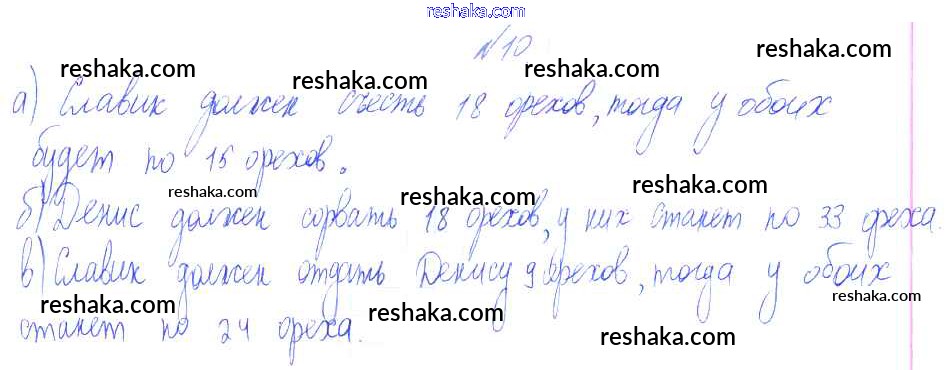 reshaka.com
№10
reshaka.com reshaka.com reshaka.com
а) Славик должен съесть 18 орехов, тогда у обоих
будет по 15 орехов.
reshaka.com reshaka.com reshaka.com
б) Денис должен сорвать 18 орехов, у них станет по 33 ореха.
в) Славик должен отдать Денису 9 орехов, тогда у обоих
reshaka.com reshaka.com reshaka.com
станет по 24 ореха.
reshaka.com